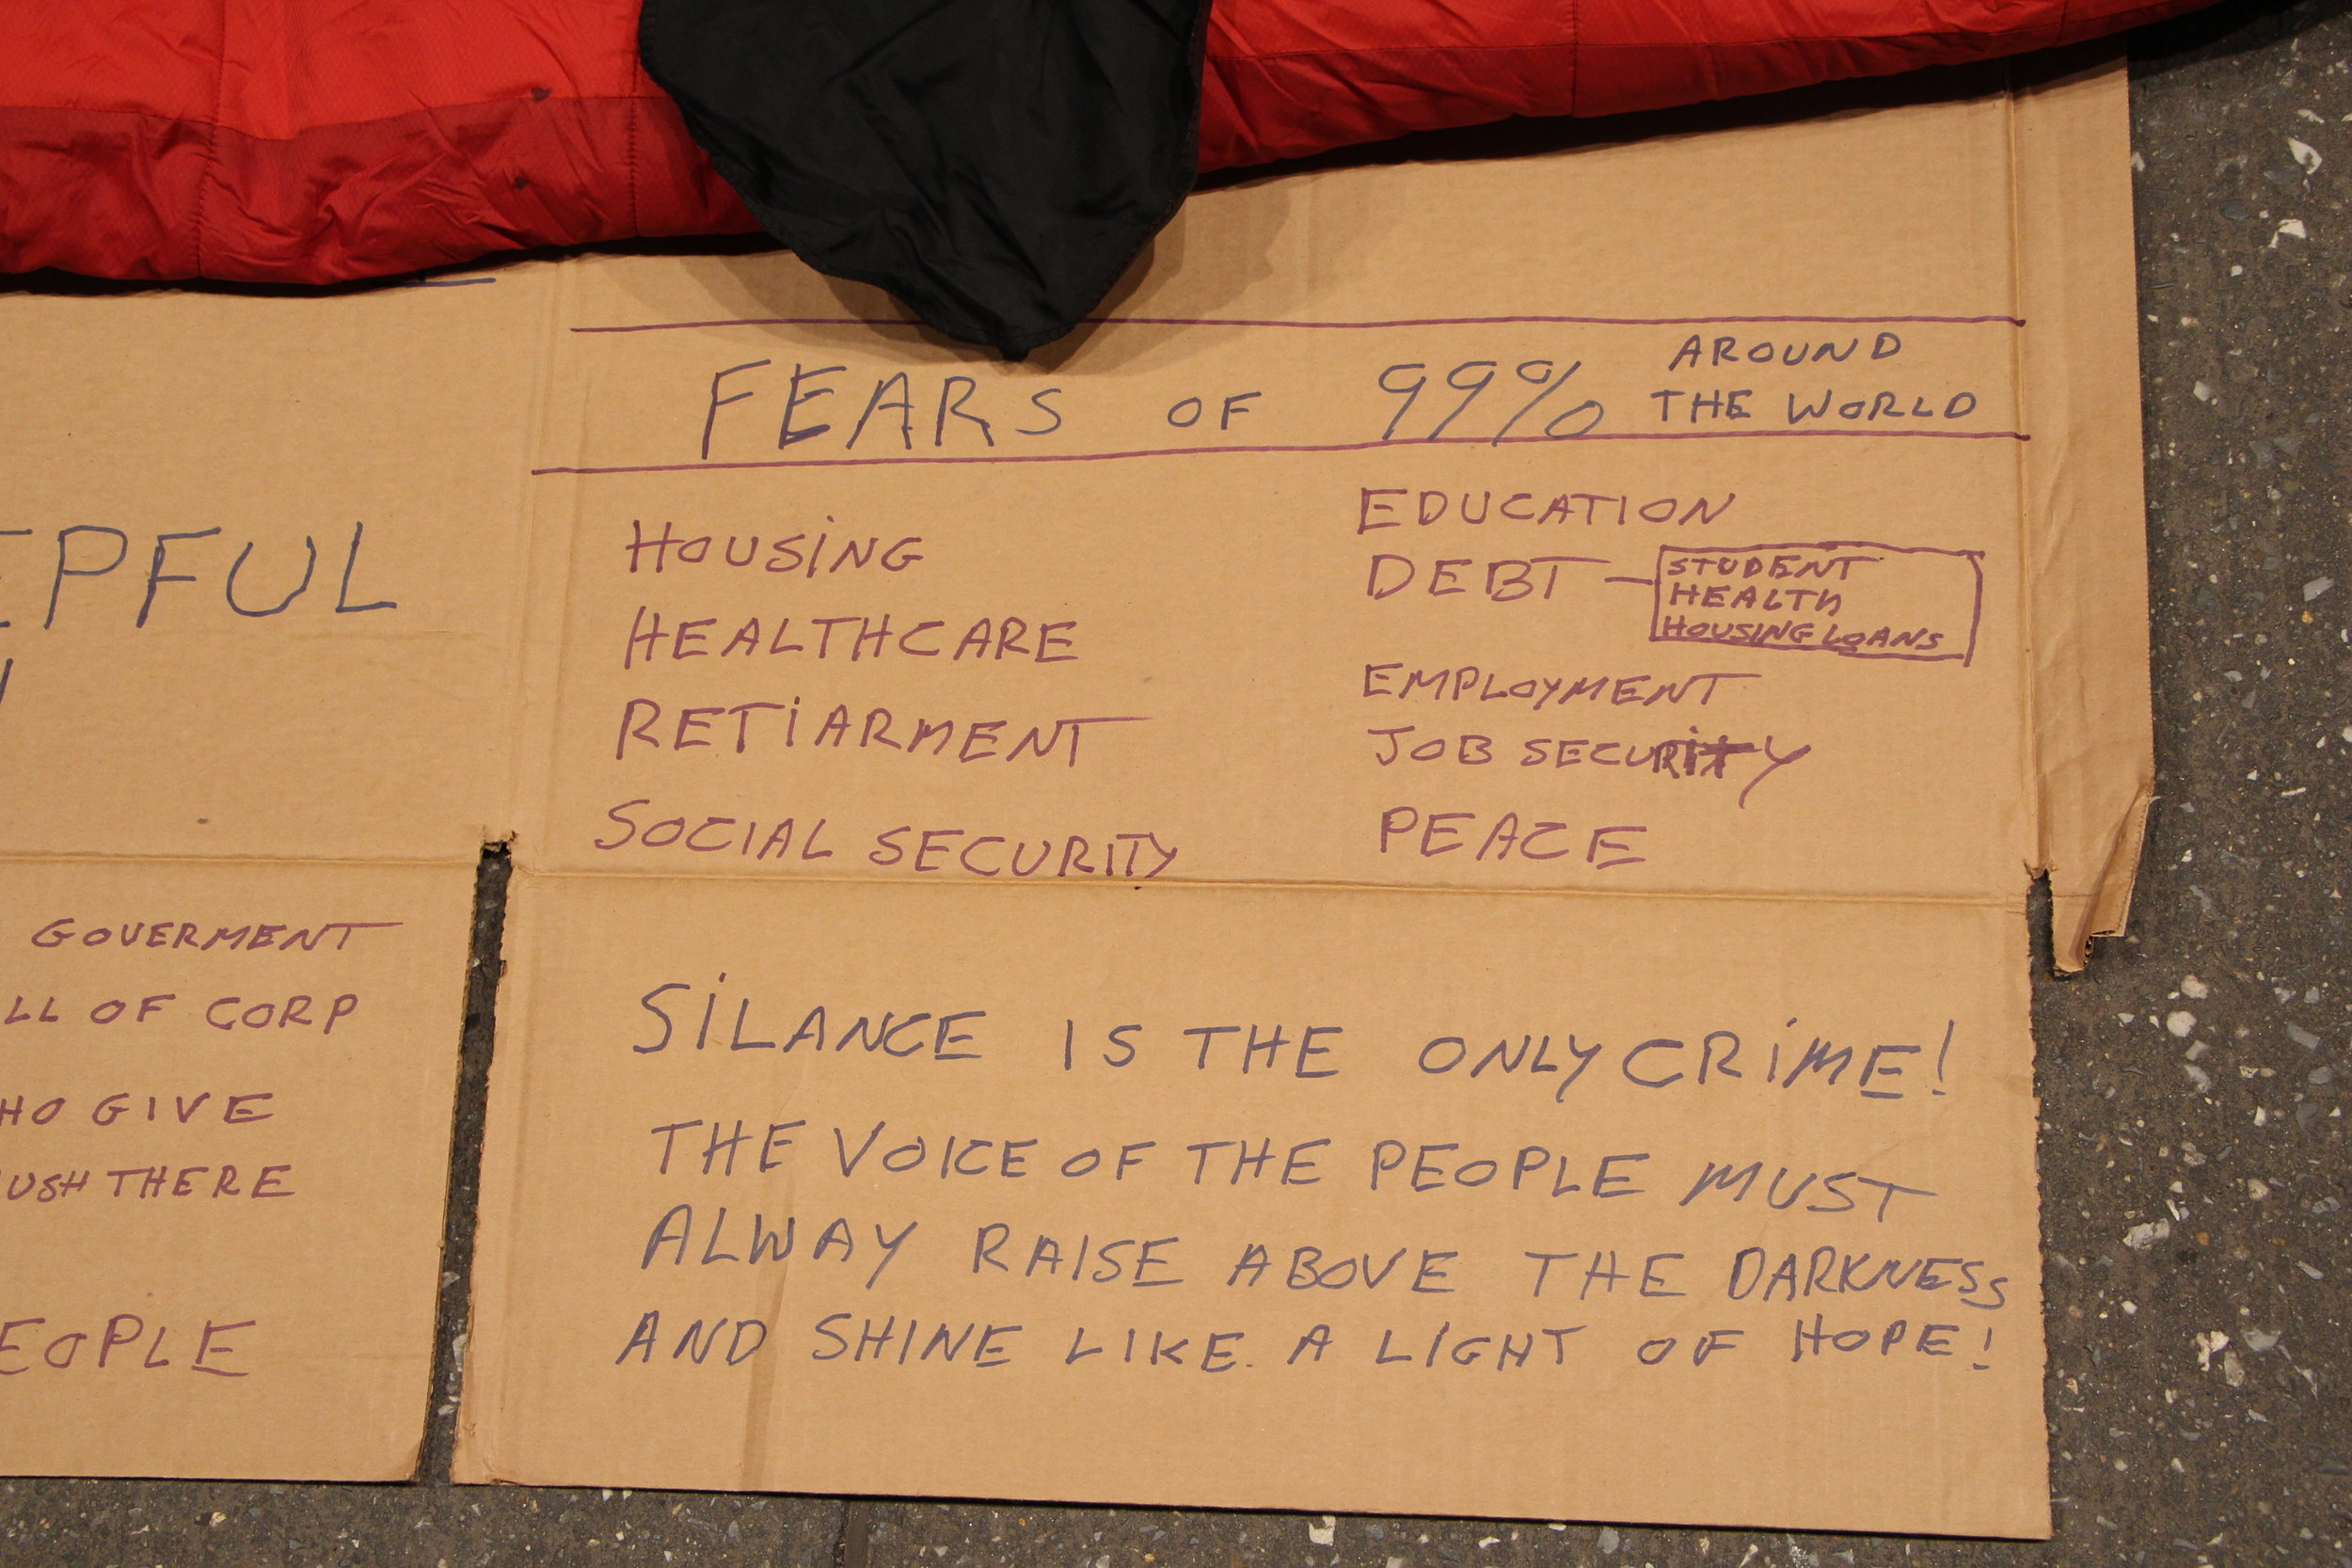 FEARS OF 99% AROUND
THE WORLD
HOUSING
HEALTHCARE
RETIARMENT
SOCIAL SECURITY
EDUCATION
DEBT - STUDENT
HEALTH
HOUSING LOANS
EMPLOYMENT
JOB SECURITY
PEACE
SILANCE IS THE ONLY CRIME!
THE VOICE OF THE PEOPLE MUST
ALWAY RAISE ABOVE THE DARKNESS
AND SHINE LIKE A LIGHT OF HOPE!
GOVERMENT
OF CORP
GIVE
THERE